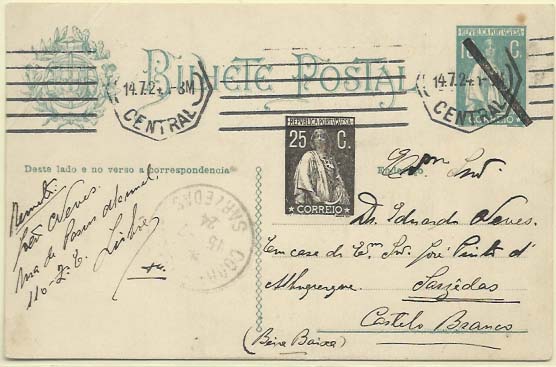 REPUBLICA PORTUGUESA
C.
CORREIO
BILHETE POSTAL
14.7.24.1-8M
CENTRAL
14.7.24.1-8M
CENTRAL
REPUBLICA PORTUGUESA
25 C.
CORREIO
Deste lado e no verso a correspondencia
Endereço
SARZEDAS
24
Remete
João Neves
Rua de
110-2.E.
Lisboa
Exmo Snr.
Dr. Eduardo Neves.
Em casa do Exmo Snr José Pinto d'
Albuquerque
Sarzedas
Castelo Branco
(Beira Baixa)